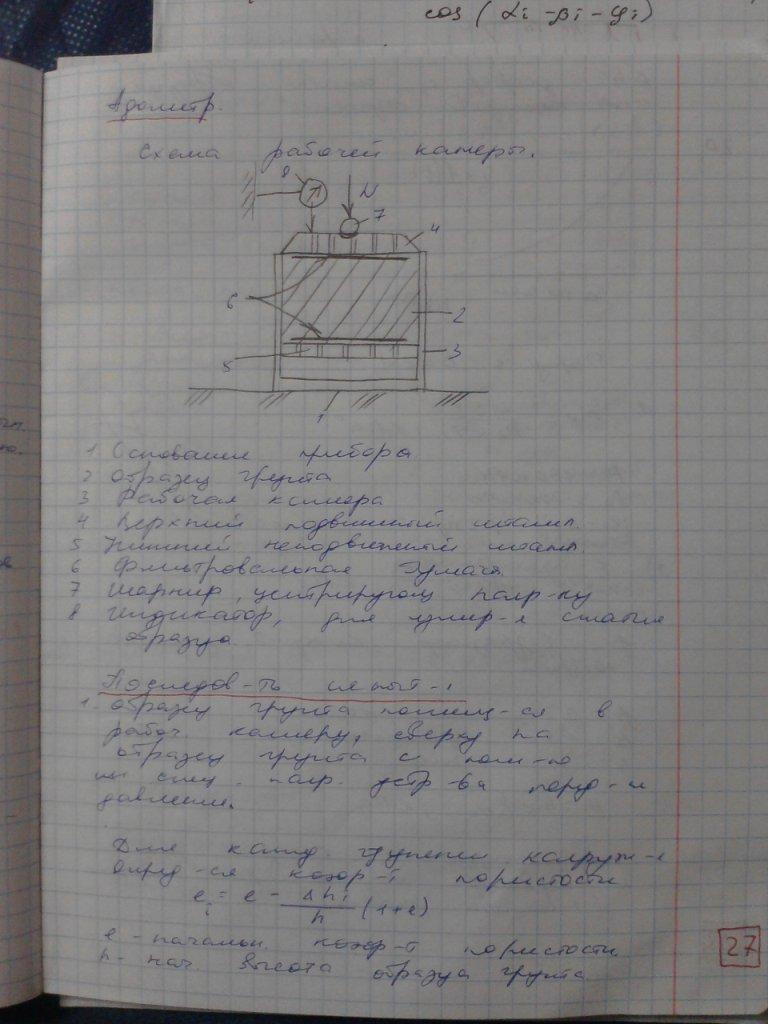 cos (αi - βi - φi)
Одометр.
Схема рабочей камеры.
8
N
7
4
6
2
3
5
1
1 Основание прибора
2 Образец грунта
3 Рабочая камера
4 Верхний подвижный штамп.
5 Нижний неподвижный штамп.
6 Фильтровальная бумага.
7 Шарнир, центрирующ нагр-ку
8 Индикатор, для измер-я сжатия
образца.
Последов-ть испыт-я
1. Образец грунта помещ-ся в
рабоч. камеру, сверху на
образец грунта с пом-ю
спец. нагр. устр-ва перед-я
давление.
Для кажд. ступени нагруж-я
опред-ся коэф-т пористости
ei = e - Δhi/h (1+e)
e - начальн. коэф-т пористости
h - нач. высота образца грунта.
27